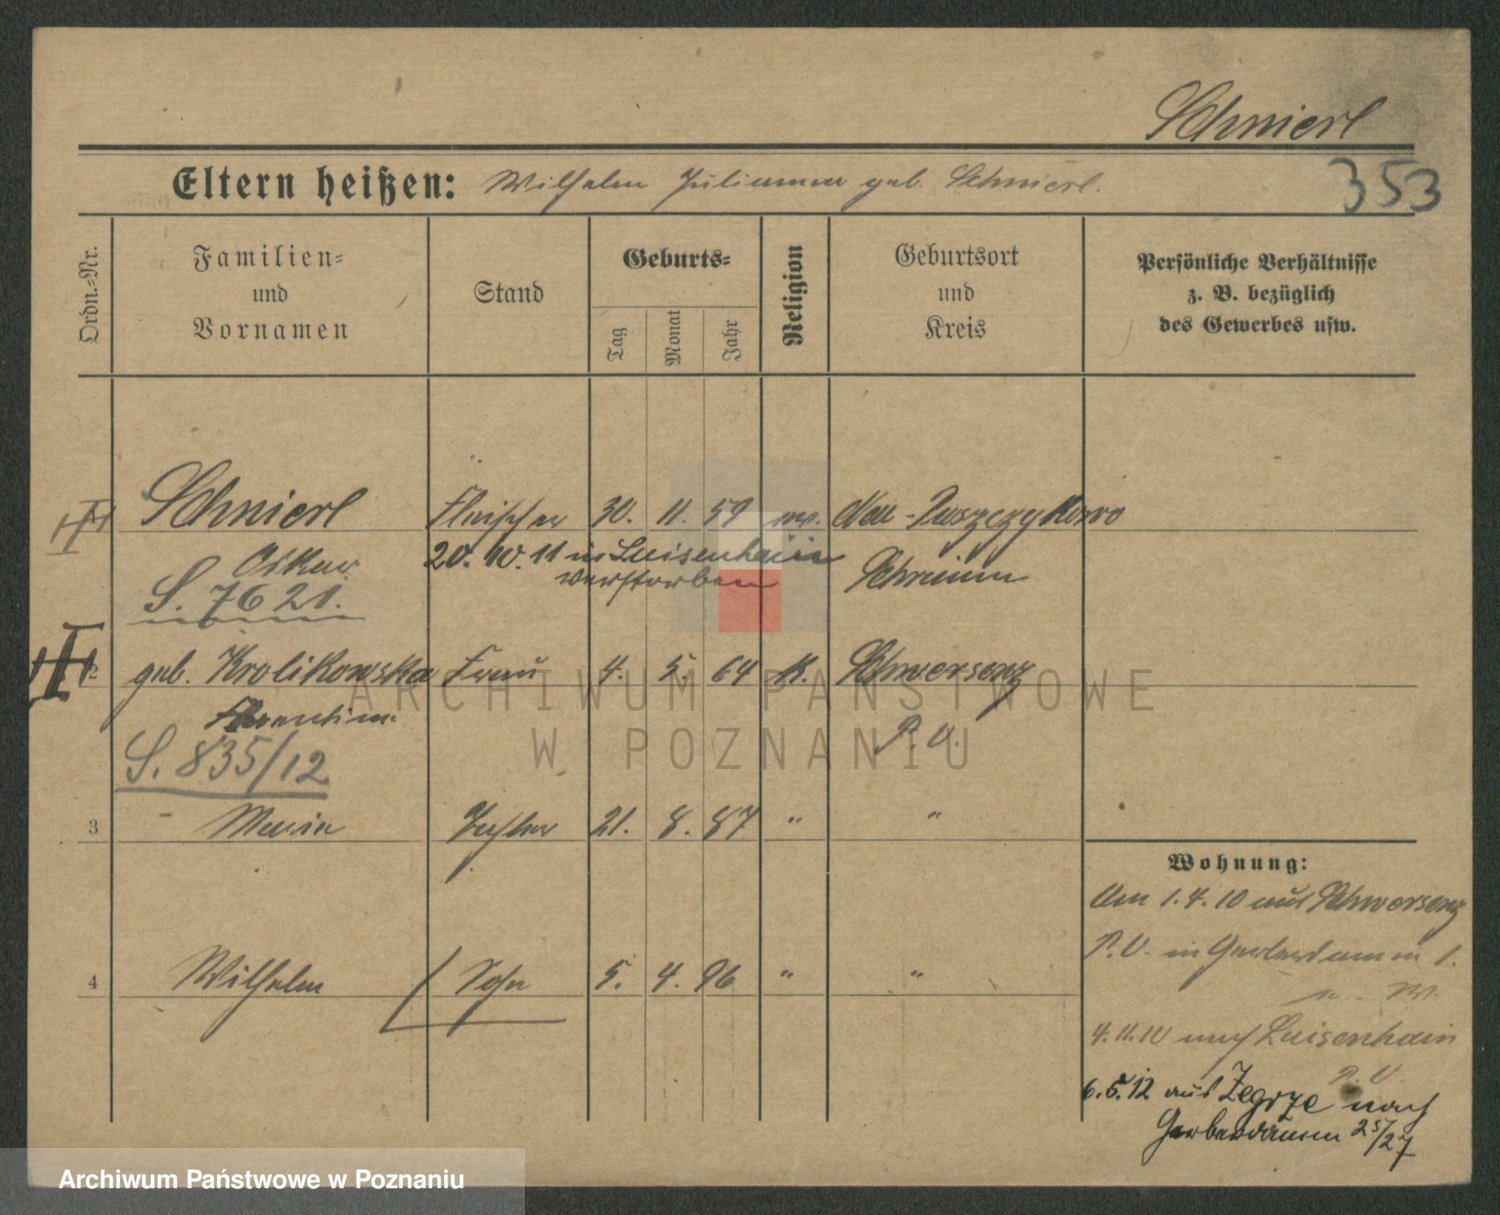 Schnierl
353
Eltern heißen: Wilhelm Julianna geb. Schnierl.
Ordn.-Nr.
Familien- und Vornamen
Stand
Geburts-
Tag
Monat
Jahr
Religion
Geburtsort und Kreis
Persönliche Verhältnisse
z. B. bezüglich
des Gewerbes usw.
Schnierl Fleischer 30. 11. 59 Neu-Puszczykowo
Oskar 20. 10. 11 in Luisenhain
verstorben Schrimm
S. 7621.
2 geb. Krolikowska Frau 4. 5. 64 K. Schwersenz
Florentine P. O.
S. 835/12
3 Maria Tochter 21. 8. 87 " "
4 Wilhelm Sohn 5. 4. 96 " "
Wohnung:
Am 1.4.10 aus Schwersenz
P.O. in Gerberdamm 1.
4.11.10 nach Luisenhain
P.O.
6.5.12 aus Zegrze nach
Gerberdamm 25/27
ARCHIWUM PAŃSTWOWE
W POZNANIU
Archiwum Państwowe w Poznaniu